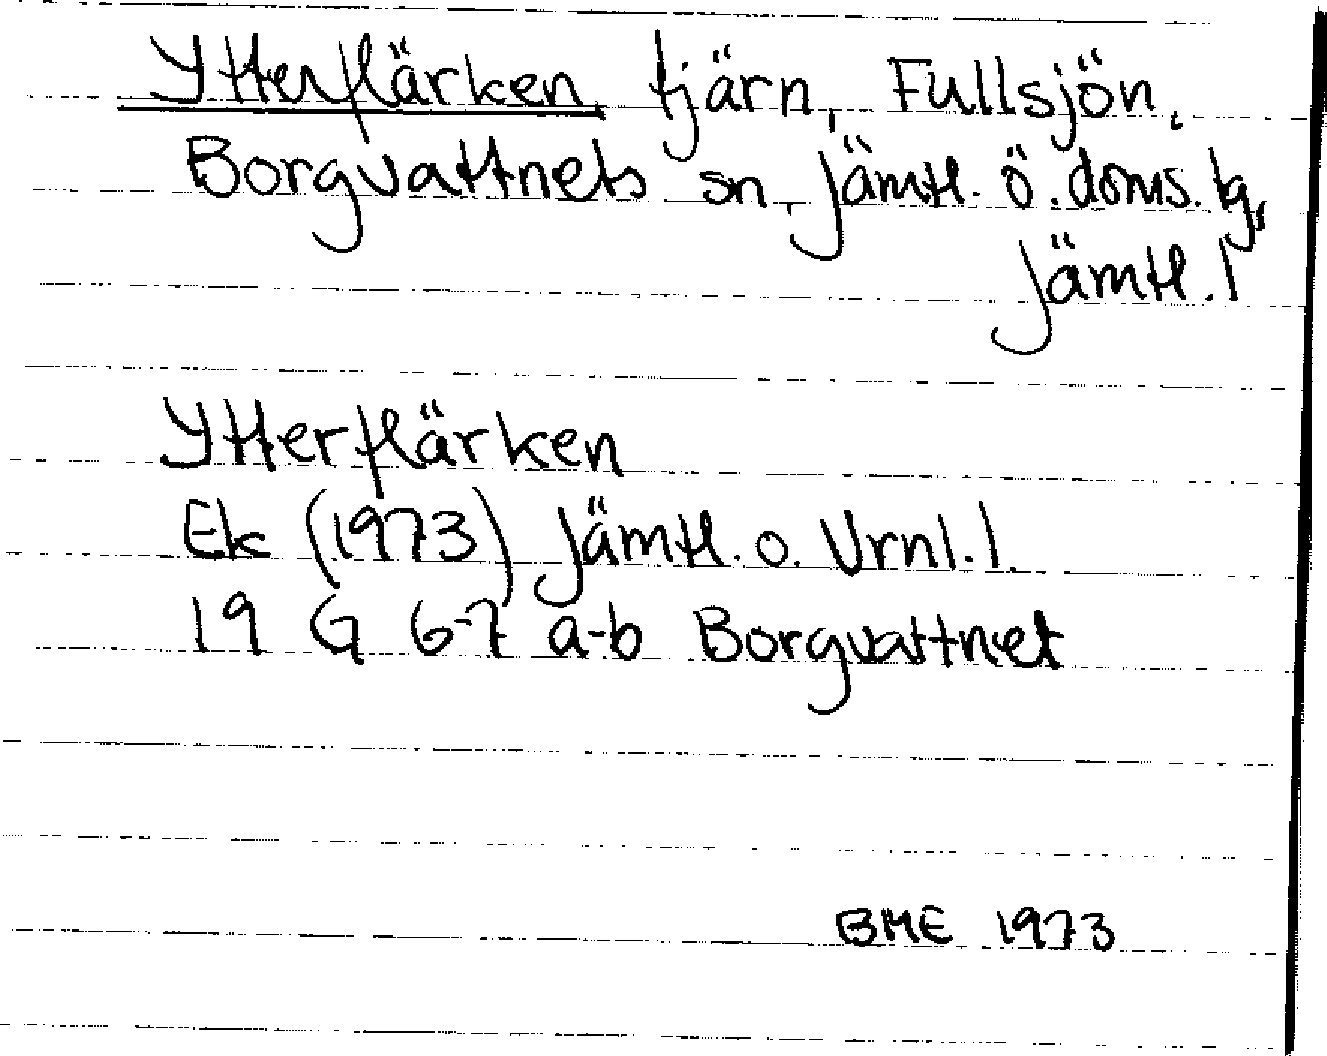 Ytterflärken tjärn, Fullsjön,
Borgvattnets sn, Jämtl. ö. doms. tg,
Jämtl. l
Ytterflärken
Ek (1973) Jämtl. o. Vrnl. l.
19 G 6-7 a-b Borgvattnet
BME 1973